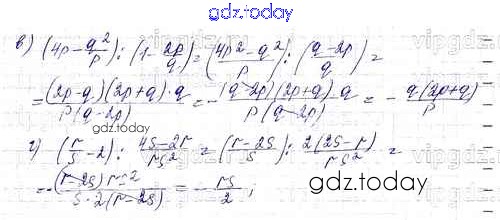 gdz.today
в) (4p - q²/p) : (1 - 2p/q) = (4p² - q²/p) : (q - 2p/q) =
= (2p - q)(2p + q) · q / p(q - 2p) = - (q - 2p)(2p + q) · q / p(q - 2p) = - q(2p + q)/p
gdz.today
г) (r/s - 2) : 4s - 2r/rs² = (r - 2s/s) : 2(2s - r)/rs² =
= - (r - 2s) rs²/s · 2(r - 2s) = - rs/2 ;
gdz.today